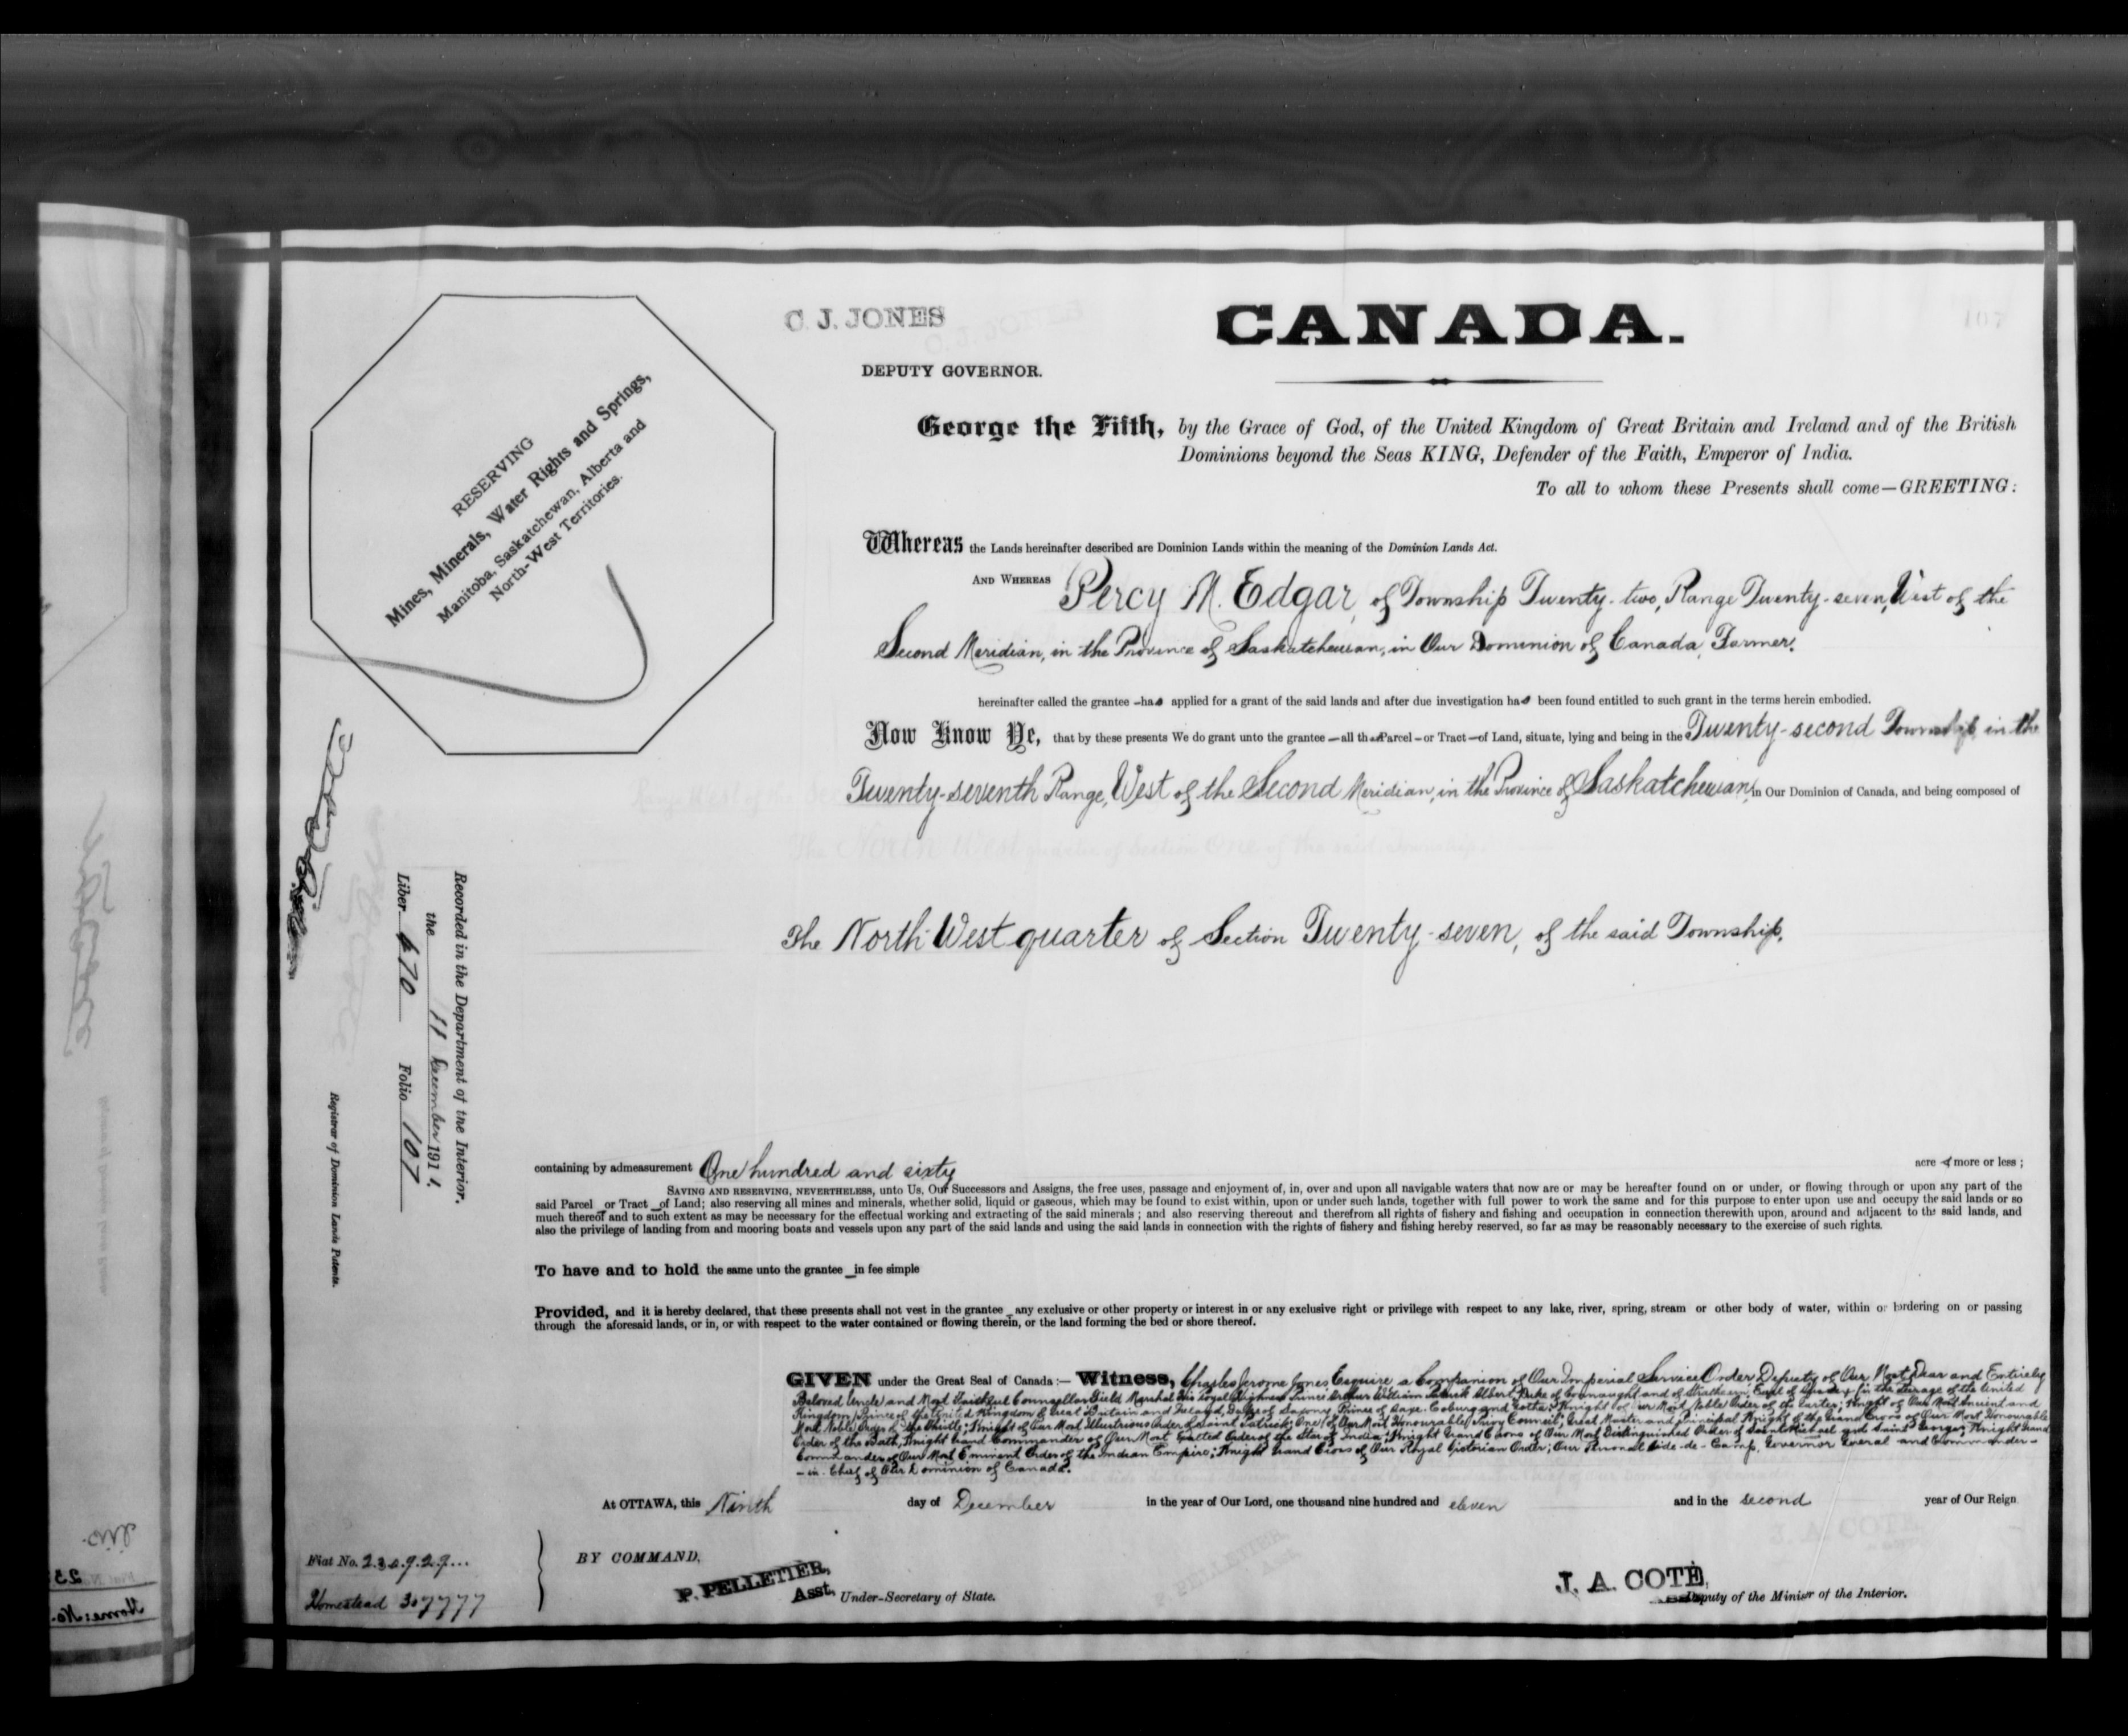 C. J. JONES
DEPUTY GOVERNOR.
CANADA.
107
RESERVING
Mines, Minerals, Water Rights and Springs,
Manitoba, Saskatchewan, Alberta and
North-West Territories.
George the Fifth, by the Grace of God, of the United Kingdom of Great Britain and Ireland and of the British
Dominions beyond the Seas KING, Defender of the Faith, Emperor of India.
To all to whom these Presents shall come—GREETING:
Whereas the Lands hereinafter described are Dominion Lands within the meaning of the Dominion Lands Act.
AND WHEREAS Percy M. Edgar, of Township Twenty-two, Range Twenty-seven, West of the
Second Meridian, in the Province of Saskatchewan, in Our Dominion of Canada, Farmer,
hereinafter called the grantee – has applied for a grant of the said lands and after due investigation has been found entitled to such grant in the terms herein embodied.
Now Know Ye, that by these presents We do grant unto the grantee — all that Parcel – or Tract — of Land, situate, lying and being in the Twenty-second Township in the
Twenty-seventh Range, West of the Second Meridian, in the Province of Saskatchewan, in Our Dominion of Canada, and being composed of
The North West quarter of Section One of the said Township.
The North West quarter of Section Twenty-seven, of the said Township.
Recorded in the Department of the Interior.
the 11 December 1911.
Liber 670 Folio 107
Registrar of Dominion Lands Patents.
containing by admeasurement One hundred and sixty acres more or less;
SAVING AND RESERVING, NEVERTHELESS, unto Us, Our Successors and Assigns, the free uses, passage and enjoyment of, in, over and upon all navigable waters that now are or may be hereafter found on or under, or flowing through or upon any part of the
said Parcel_or Tract_of Land; also reserving all mines and minerals, whether solid, liquid or gaseous, which may be found to exist within, upon or under such lands, together with full power to work the same and for this purpose to enter upon use and occupy the said lands or so
much thereof and to such extent as may be necessary for the effectual working and extracting of the said minerals; and also reserving thereout and therefrom all rights of fishery and fishing and occupation in connection therewith upon, around and adjacent to the said lands, and
also the privilege of landing from and mooring boats and vessels upon any part of the said lands and using the said lands in connection with the rights of fishery and fishing hereby reserved, so far as may be reasonably necessary to the exercise of such rights.
To have and to hold the same unto the grantee_in fee simple
Provided, and it is hereby declared, that these presents shall not vest in the grantee_any exclusive or other property or interest in or any exclusive right or privilege with respect to any lake, river, spring, stream or other body of water, within or bordering on or passing
through the aforesaid lands, or in, or with respect to the water contained or flowing therein, or the land forming the bed or shore thereof.
GIVEN under the Great Seal of Canada:— Witness, Charles Jerome Jones Esquire a Companion of Our Imperial Service Order Deputy of Our Most Dear and Entirely
Beloved Uncle and Most Faithful Counsellor Field Marshal His Royal Highness Prince Arthur William Patrick Albert Duke of Connaught and of Strathearn, Earl of Sussex (in the Peerage of the United
Kingdom) Prince of the United Kingdom of Great Britain and Ireland, Duke of Saxony, Prince of Saxe-Coburg and Gotha; Knight of Our Most Noble Order of the Garter; Knight of Our Most Ancient and
Most Noble Order of the Thistle; Knight of Our Most Illustrious Order of Saint Patrick; One of Our Most Honourable Privy Council; Great Master and Principal Knight of the Grand Cross of Our Most Honourable
Order of the Bath, Knight Grand Commander of Our Most Exalted Order of the Star of India; Knight Grand Cross of Our Most Distinguished Order of Saint Michael and Saint George; Knight Grand
Commander of Our Most Eminent Order of the Indian Empire; Knight Grand Cross of Our Royal Victorian Order; Our Personal Aide-de-Camp, Governor General and Commander-
-in-Chief of Our Dominion of Canada.
At OTTAWA, this Ninth day of December in the year of Our Lord, one thousand nine hundred and eleven and in the second year of Our Reign
Fiat No. 230929...
Homestead 307777
BY COMMAND,
P. PELLETIER,
Asst. Under-Secretary of State.
J. A. COTÉ,
Deputy of the Minister of the Interior.